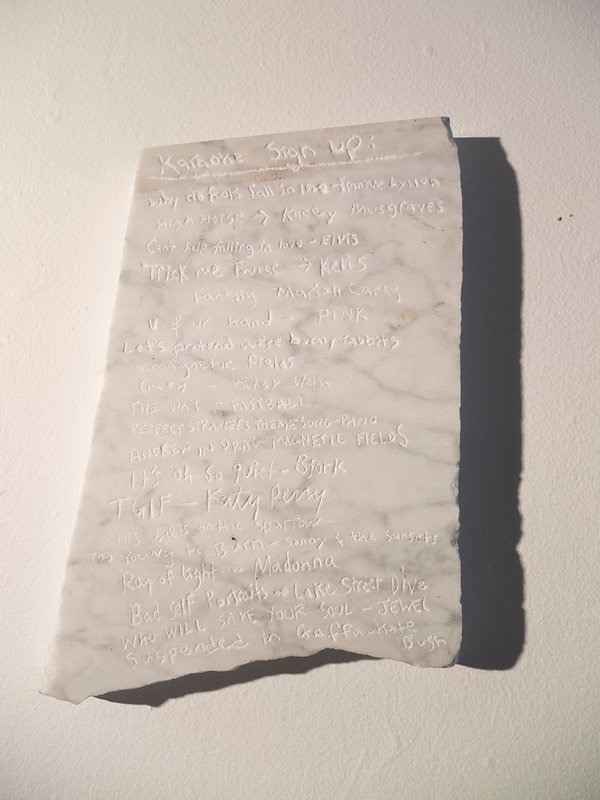 Karaoke Sign up:
Why do fools fall in love - Frankie Lymon
High Horse → Kacey Musgraves
Can't help falling in love - ELVIS
TRICK me Twice → Kelis
Fantasy - Mariah Carey
U & ur hand - PINK
Let's pretend we're bunny rabbits
- magnetic fields
Crazy - Patsy
THE WAY - FASTBALL
PERFECT STRANGERS THEME SONG - PIANO
ANDREW IN DRAG MAGNETIC FIELDS
It's oh so quiet - Bjork
TGIF - Katy Perry
His Eye is on the Sparrow -
Too YOUNG to BURN - Sonny & the Sunsets
Ray of light - Madonna
Bad Self Portraits - Lake Street Dive
WHO WILL SAVE YOUR SOUL - JEWEL
Suspended in Graffa - Kate
Bush